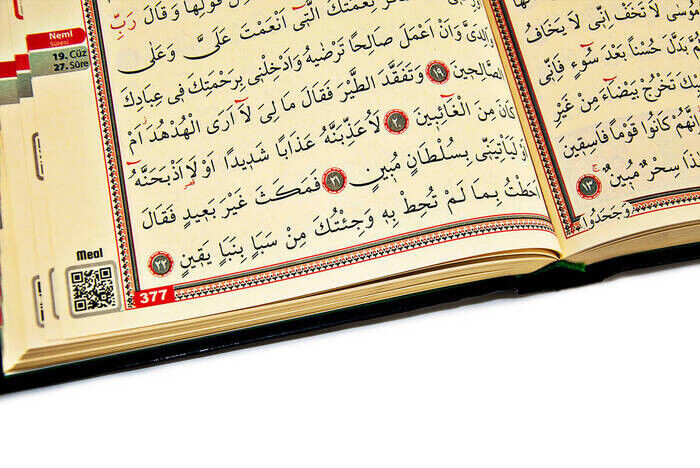 لَا تَخَفْ اِنّٖى لَا يَخَافُ
بَدَّلَ حُسْنًا بَعْدَ سُوٓءٍ فَاِنّٖى
تَخْرُجْ بَيْضَٓاءَ مِنْ غَيْرِ
كَانُوا قَوْمًا فَاسِقٖينَ
سِحْرٌ مُبٖينٌ ١٣
وَجَحَدُوا
Neml
Sûresi
19. Cüz
27. Sûre
قَوْلِهَا وَقَالَ رَبِّ
نِعْمَتَكَ الَّتٖٓى اَنْعَمْتَ عَلَىَّ وَعَلٰى
وَالِدَىَّ وَاَنْ اَعْمَلَ صَالِحًا تَرْضٰيهُ وَاَدْخِلْنٖى بِرَحْمَتِكَ فٖى عِبَادِكَ
الصَّالِحٖينَ ١٩ وَتَفَقَّدَ الطَّيْرَ فَقَالَ مَا لِىَ لَٓا اَرَى الْهُدْهُدَ اَمْ
كَانَ مِنَ الْغَٓائِبٖينَ ٢٠ لَاُعَذِّبَنَّهُ عَذَابًا شَدٖيدًا اَوْ لَا۬اَذْبَحَنَّهُٓ
اَوْ لَيَاْتِيَنّٖى بِسُلْطَانٍ مُبٖينٍ ٢١ فَمَكَثَ غَيْرَ بَعٖيدٍ فَقَالَ
اَحَطْتُ بِمَا لَمْ تُحِطْ بِهٖ وَجِئْتُكَ مِنْ سَبَاٍ بِنَبَاٍ يَقٖينٍ ٢٢
Meal
377